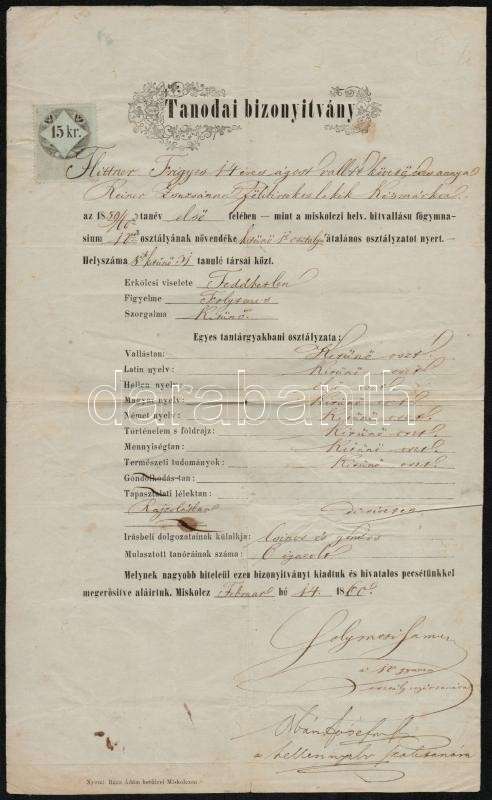 Tanodai bizonyitvány
15 kr.
Flittner Frigyes 14 éves ágost. vallást követő édes anyja
Reiner Zsuzsánna lakik
az 1859/60 tanév első felében — mint a miskolczi helv. hitvallásu főgymna-
sium osztályának növendéke kitünő átalános osztályzatot nyert. —
Helyszáma kitünő tanuló társai közt.
Erkölcsi viselete Feddhetlen
Figyelme Folytonos
Szorgalma Kitünő.
Egyes tantárgyakbani osztályzata:
Vallástan: Kitünő oszt.
Latin nyelv: Kitünő oszt.
Hellen nyelv: oszt.
Magyar nyelv: Kitünő oszt.
Német nyelv: Kitünő oszt.
Történelem s földrajz: Kitünő oszt.
Mennyiségtan: Kitünő oszt.
Természeti tudományok: Kitünő oszt.
Gondolkodás-tan:
Tapasztalati lélektan:
Rajzolásban dicséretes
Irásbeli dolgozatainak külalkja: Csinos és gondos
Mulasztott tanóráinak száma: 6 igazolt
Melynek nagyobb hiteléül ezen bizonyitványt kiadtuk és hivatalos pecsétünkkel
megerősitve aláirtuk. Miskolcz Februar hó 14. 1860.
Solymosi Samu
a
József
a hellennyelv
Nyomt. Rácz Ádám betüivel Miskolczon
darabanth